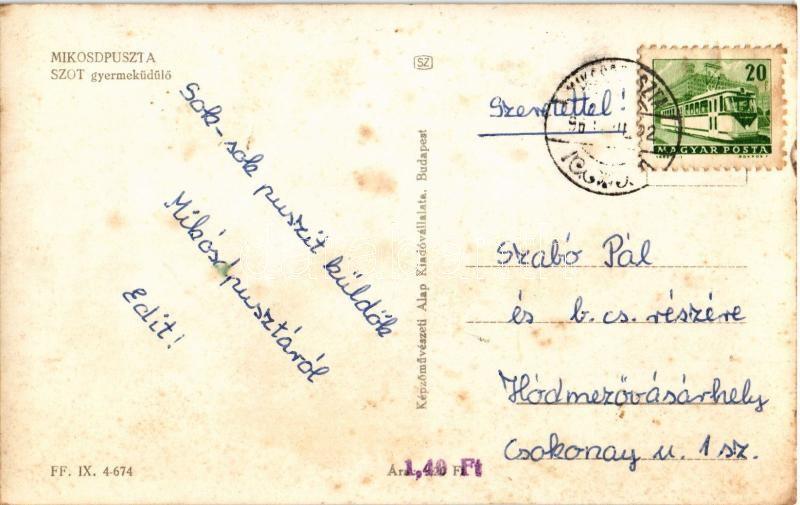 MIKOSDPUSZTA
SZOT gyermeküdülő
Sok-sok puszit küldök
Mikósdpusztáról
Edit!
FF. IX. 4-674
SZ
Képzőművészeti Alap Kiadóvállalata, Budapest
1,40 Ft
Szeretettel!
20
MAGYAR POSTA
Szabó Pál
és b. cs. részére
Hódmezővásárhely
Csokonay u. 1 sz.